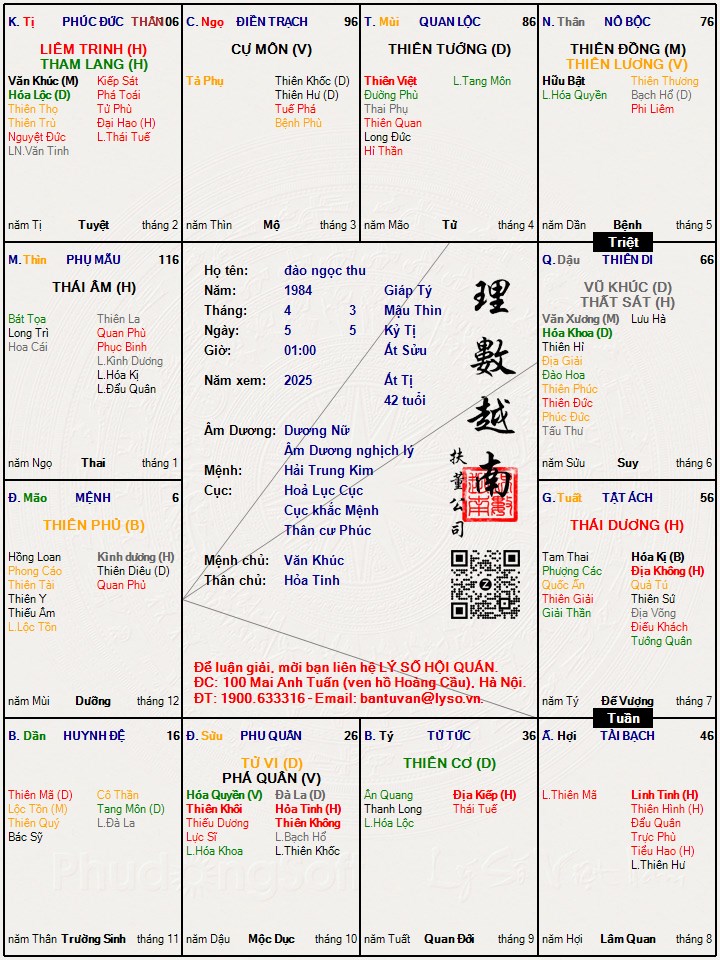 K. Tị PHÚC ĐỨC THÂN106
LIÊM TRINH (H)
THAM LANG (H)
Văn Khúc (M) Kiếp Sát
Hóa Lộc (D) Phá Toái
Thiên Thọ Tử Phù
Thiên Trù Đại Hao (H)
Nguyệt Đức L.Thái Tuế
LN.Văn Tinh
năm Tị Tuyệt tháng 2
C. Ngọ ĐIỀN TRẠCH 96
CỰ MÔN (V)
Tả Phụ Thiên Khốc (D)
Thiên Hư (D)
Tuế Phá
Bệnh Phù
năm Thìn Mộ tháng 3
T. Mùi QUAN LỘC 86
THIÊN TƯỚNG (D)
Thiên Việt L.Tang Môn
Đường Phù
Thai Phụ
Thiên Quan
Long Đức
Hỉ Thần
năm Mão Tử tháng 4
N. Thân NÔ BỘC 76
THIÊN ĐỒNG (M)
THIÊN LƯƠNG (V)
Hữu Bật Thiên Thương
L.Hóa Quyền Bạch Hổ (D)
Phi Liêm
năm Dần Bệnh tháng 5
Triệt
M. Thìn PHỤ MẪU 116
THÁI ÂM (H)
Bát Tọa Thiên La
Long Trì Quan Phù
Hoa Cái Phục Binh
L.Kình Dương
L.Hóa Kị
L.Đẩu Quân
năm Ngọ Thai tháng 1
Họ tên: đào ngọc thu
Năm: 1984 Giáp Tý
Tháng: 4 3 Mậu Thìn
Ngày: 5 5 Kỷ Tị
Giờ: 01:00 Ất Sửu
Năm xem: 2025 Ất Tị
42 tuổi
Âm Dương: Dương Nữ
Âm Dương nghịch lý
Mệnh: Hải Trung Kim
Cục: Hoả Lục Cục
Cục khắc Mệnh
Thân cư Phúc
Mệnh chủ: Văn Khúc
Thân chủ: Hỏa Tinh
理數越南
扶董公司
Để luận giải, mời bạn liên hệ LÝ SỐ HỘI QUÁN.
ĐC: 100 Mai Anh Tuấn (ven hồ Hoàng Cầu), Hà Nội.
ĐT: 1900.633316 - Email: bantuvan@lyso.vn.
Q. Dậu THIÊN DI 66
VŨ KHÚC (D)
THẤT SÁT (H)
Văn Xương (M) Lưu Hà
Hóa Khoa (D)
Thiên Hỉ
Địa Giải
Đào Hoa
Thiên Phúc
Thiên Đức
Phúc Đức
Tấu Thư
năm Sửu Suy tháng 6
Đ. Mão MỆNH 6
THIÊN PHỦ (B)
Hồng Loan Kình dương (H)
Phong Cáo Thiên Diêu (D)
Thiên Tài Quan Phủ
Thiên Y
Thiếu Âm
L.Lộc Tồn
năm Mùi Dưỡng tháng 12
G. Tuất TẬT ÁCH 56
THÁI DƯƠNG (H)
Tam Thai Hóa Kị (B)
Phượng Các Địa Không (H)
Quốc Ấn Quả Tú
Thiên Giải Thiên Sứ
Giải Thần Địa Võng
Điếu Khách
Tướng Quân
năm Tý Đế Vượng tháng 7
Tuần
B. Dần HUYNH ĐỆ 16
Thiên Mã (D) Cô Thần
Lộc Tồn (M) Tang Môn (D)
Thiên Quý L.Đà La
Bác Sỹ
năm Thân Trường Sinh tháng 11
Đ. Sửu PHU QUÂN 26
TỬ VI (D)
PHÁ QUÂN (V)
Hóa Quyền (V) Đà La (D)
Thiên Khôi Hỏa Tinh (H)
Thiếu Dương Thiên Không
Lực Sĩ L.Bạch Hổ
L.Hóa Khoa L.Thiên Khốc
năm Dậu Mộc Dục tháng 10
B. Tý TỬ TỨC 36
THIÊN CƠ (D)
Ân Quang Địa Kiếp (H)
Thanh Long Thái Tuế
L.Hóa Lộc
năm Tuất Quan Đới tháng 9
Ấ. Hợi TÀI BẠCH 46
L.Thiên Mã Linh Tinh (H)
Thiên Hình (H)
Đẩu Quân
Trực Phù
Tiểu Hao (H)
L.Thiên Hư
năm Hợi Lâm Quan tháng 8